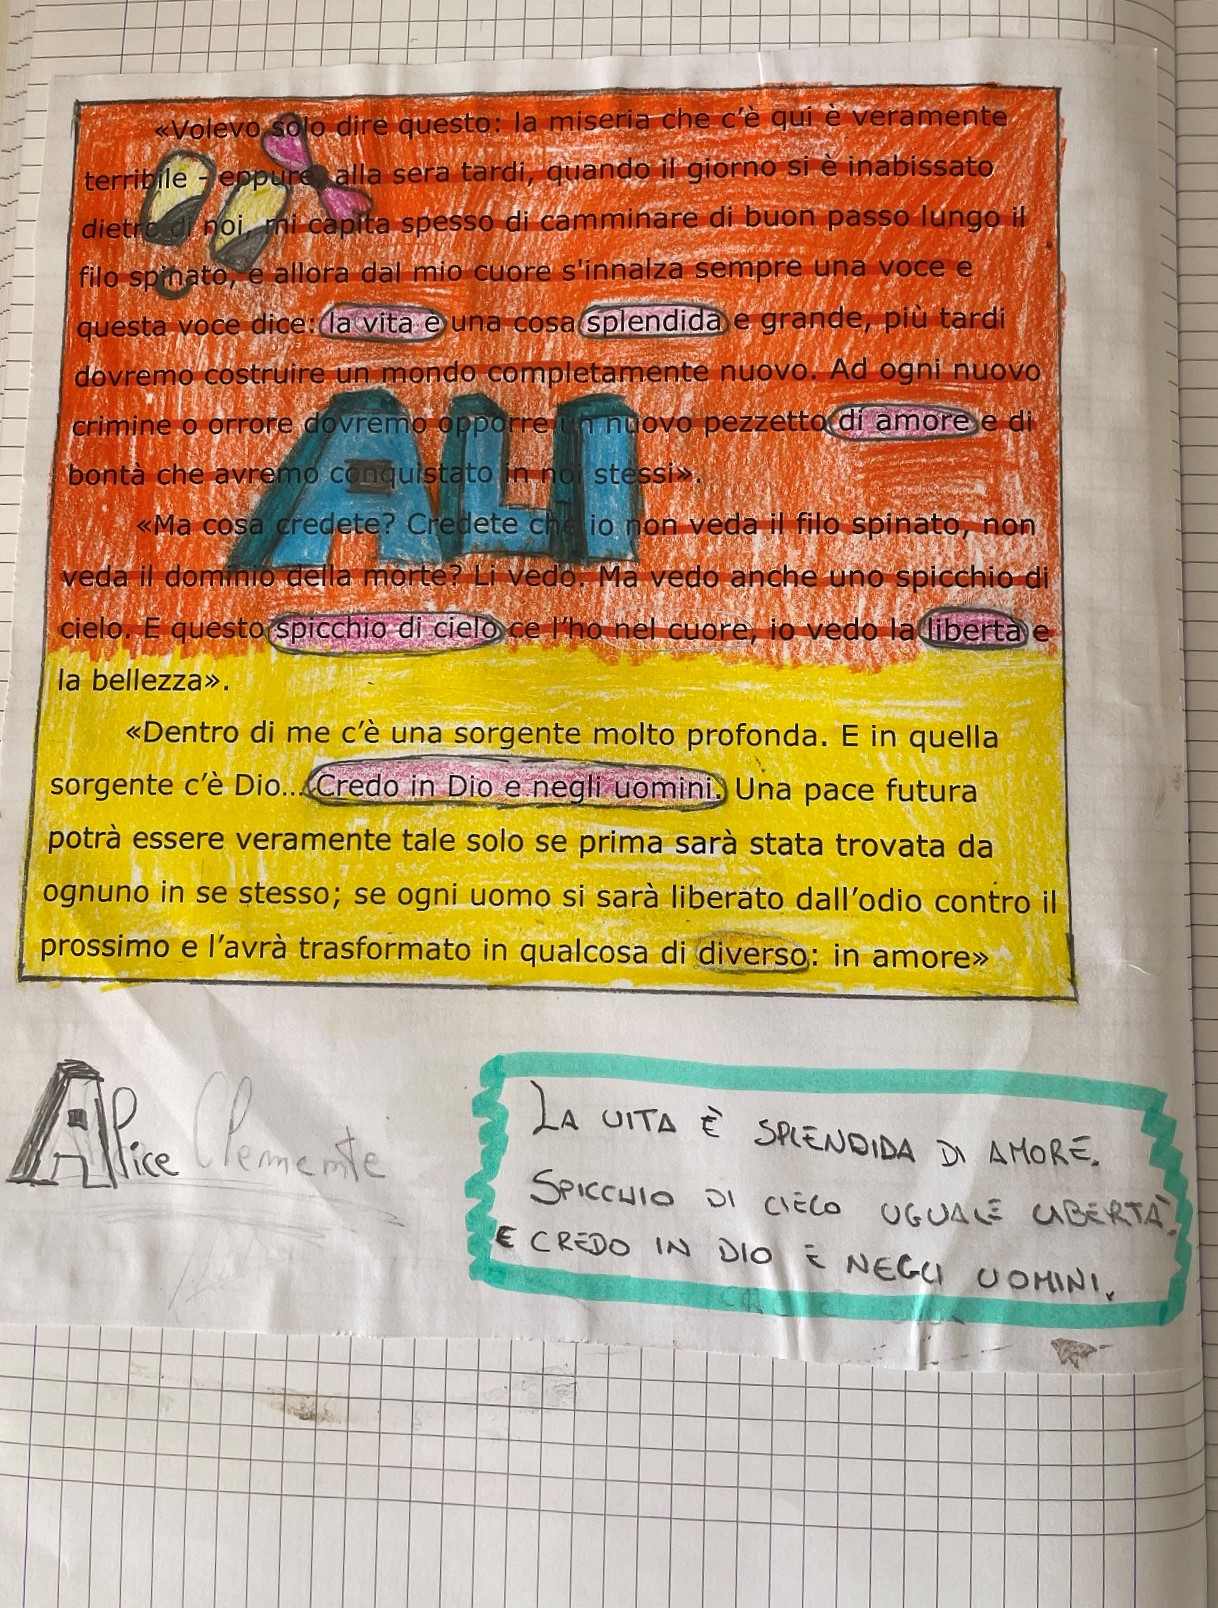 «Volevo solo dire questo: la miseria che c'è qui è veramente
terribile - eppure, alla sera tardi, quando il giorno si è inabissato
dietro di noi, mi capita spesso di camminare di buon passo lungo il
filo spinato, e allora dal mio cuore s'innalza sempre una voce e
questa voce dice: la vita è una cosa splendida e grande, più tardi
dovremo costruire un mondo completamente nuovo. Ad ogni nuovo
crimine o orrore dovremo opporre un nuovo pezzetto di amore e di
bontà che avremo conquistato in noi stessi».
ALI
«Ma cosa credete? Credete che io non veda il filo spinato, non
veda il dominio della morte? Li vedo. Ma vedo anche uno spicchio di
cielo. E questo spicchio di cielo ce l'ho nel cuore, io vedo la libertà e
la bellezza».
«Dentro di me c'è una sorgente molto profonda. E in quella
sorgente c'è Dio... Credo in Dio e negli uomini. Una pace futura
potrà essere veramente tale solo se prima sarà stata trovata da
ognuno in se stesso; se ogni uomo si sarà liberato dall'odio contro il
prossimo e l'avrà trasformato in qualcosa di diverso: in amore»
Alice Clemente
LA VITA È SPLENDIDA DI AMORE.
SPICCHIO DI CIELO UGUALE LIBERTÀ.
E CREDO IN DIO E NEGLI UOMINI.